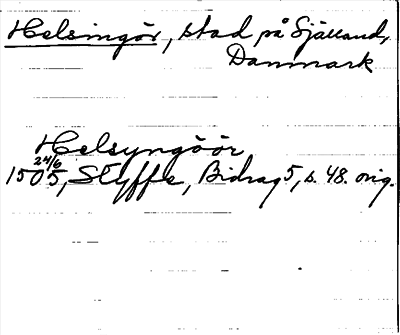 Helsingör, stad på Själland,
Danmark
Helsyngöör
24/6
1505, Styffe, Bidrag 5, s. 48. orig.